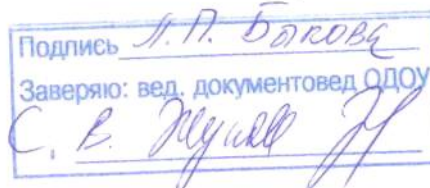 Подпись Л.П. Быкова
Заверяю: вед. документовед ОДОУ
С. В.